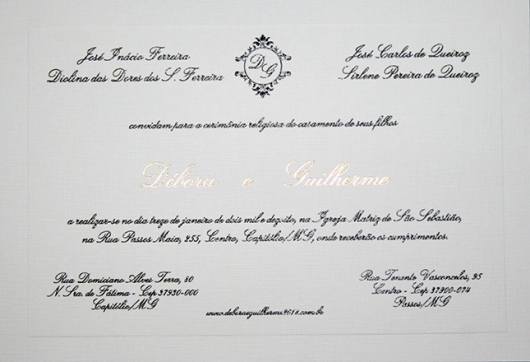 José Inácio Ferreira
Diolina das Dores dos S. Ferreira
D G
José Carlos de Queiroz
Sirlene Pereira de Queiroz
convidam para a cerimônia religiosa do casamento de seus filhos
Débora e Guilherme
a realizar-se no dia treze de janeiro de dois mil e dezoito, na Igreja Matriz de São Sebastião,
na Rua Passos Maia, 255, Centro, Capitólio/MG, onde receberão os cumprimentos.
Rua Domiciano Alves Terra, 40
N. Sra. de Fátima - Cep 37930-000
Capitólio/MG
Rua Tenente Vasconcelos, 95
Centro - Cep 37900-074
Passos/MG
www.deboraeguilherme2018.com.br